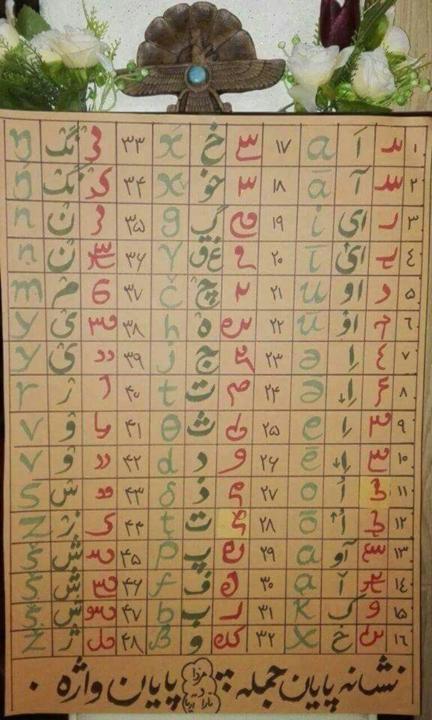 ۱ 𐬀 اَ a ۱۷ خ x ۳۳ نگ ŋ
۲ 𐬁 آ ā ۱۸ خو xᵛ ۳۴ نگ ŋ
۳ 𐬌 ای i ۱۹ 𐬔 گ g ۳۵ 𐬥 ن n
۴ 𐬍 ای ī ۲۰ 𐬖 غ ق γ ۳۶ ن n
۵ 𐬎 او u ۲۱ 𐬗 چ č ۳۷ 𐬨 م m
۶ 𐬏 او ū ۲۲ 𐬵 ه h ۳۸ 𐬫 ی y
۷ 𐬆 اِ ə ۲۳ 𐬘 ج j ۳۹ 𐬌𐬌 ی y
۸ 𐬇 اِ ə ۲۴ 𐬙 ت t ۴۰ 𐬭 ر r
۹ 𐬈 اِ e ۲۵ 𐬚 ث θ ۴۱ 𐬬 و v
۱۰ 𐬉 اِ ē ۲۶ 𐬛 د d ۴۲ 𐬎𐬎 و v
۱۱ 𐬊 اُ o ۲۷ 𐬜 ذ δ ۴۳ 𐬯 س s
۱۲ 𐬋 اُ o ۲۸ 𐬝 ت t ۴۴ 𐬰 ز z
۱۳ آو a ۲۹ 𐬞 پ p ۴۵ ش š
۱۴ آ a ۳۰ 𐬟 ف f ۴۶ ش š
۱۵ 𐬐 ک k ۳۱ 𐬠 ب b ۴۷ ش š
۱۶ 𐬑 خ x ۳۲ 𐬡 و β ۴۸ 𐬲 ژ ž
نشانه پایان جمله پایان واژه ۰